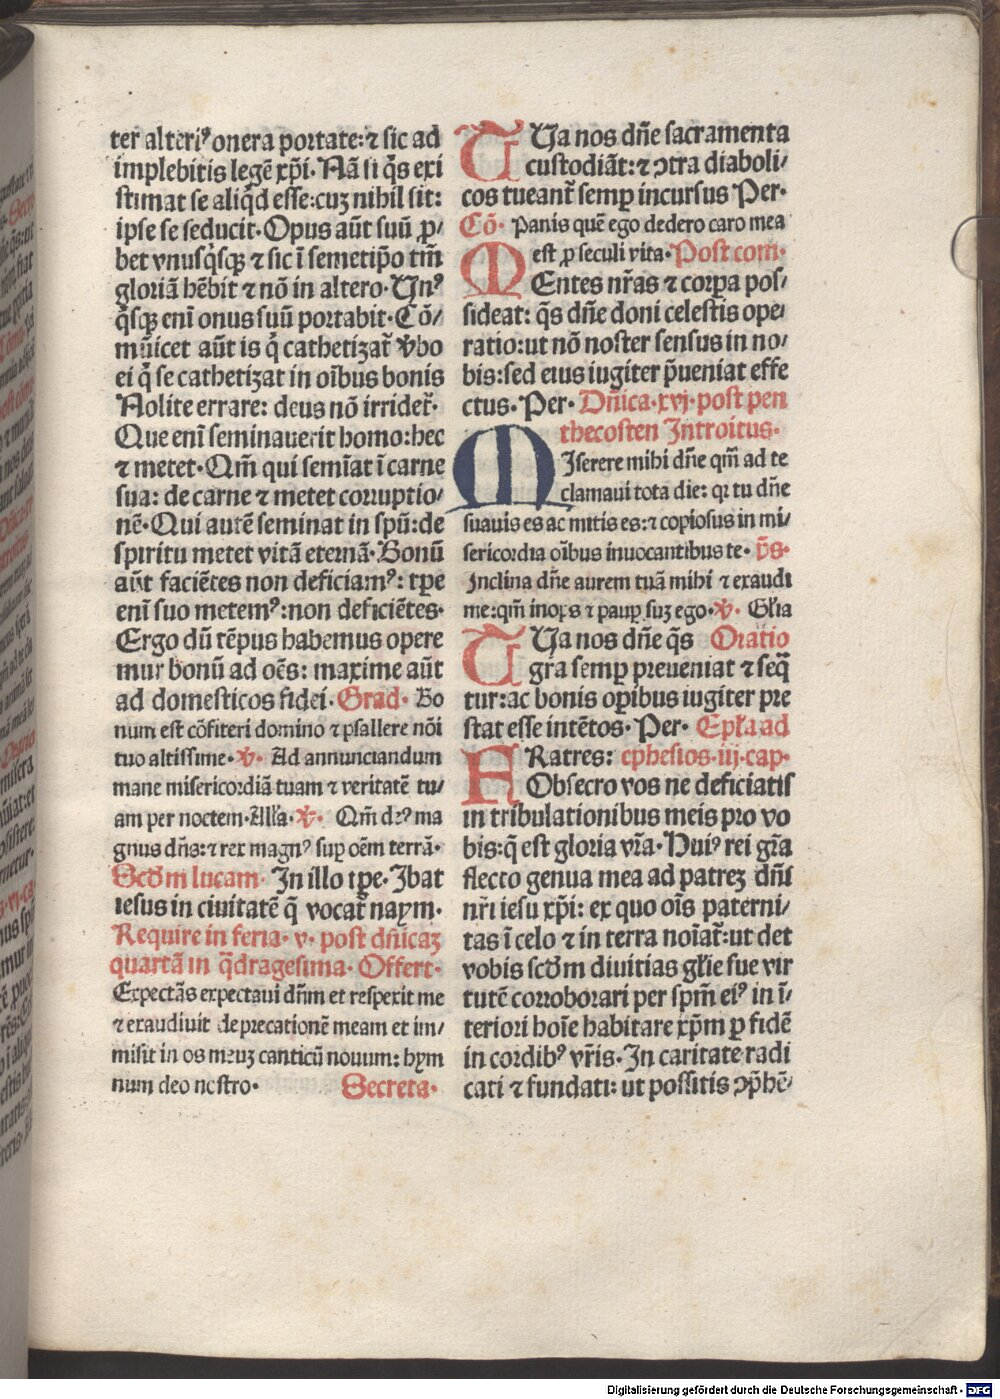 ter alteri⁹ onera portate: ⁊ sic ad
implebitis legē xp̄i. Nā si q̄s exi
stimat se aliq̄d esse: cuꝫ nihil sit:
ipse se seducit. Opus aūt suū ꝓ/
bet vnusq̄sqꝫ ⁊ sic ī semetip̄o tm̄
gloriā hēbit ⁊ nō in altero. Un⁹
q̄sqꝫ enī onus suū portabit. Cō/
mūicet aūt is q̄ cathetizat̄ v̄bo
ei q̄ se cathetizat in oībus bonis
Nolite errare: deus nō irridet̄.
Que enī seminauerit homo: hec
⁊ metet. Qm̄ qui semīat ī carne
sua: de carne ⁊ metet corruptio/
nē. Qui autē seminat in spū: de
spiritu metet vitā eternā. Bonū
aūt faciētes non deficiam⁹: tpe
enī suo metem⁹: non deficiētes.
Ergo dū tēpus habemus opere
mur bonū ad oēs: maxime aūt
ad domesticos fidei. Grad. Bo
num est cōfiteri domino ⁊ psallere nōi
tuo altissime. ℣. Ad annunciandum
mane misericordiā tuam ⁊ veritatē tu/
am per noctem. Alła. ℣. Qm̄ de⁹ ma
gnus dn̄s: ⁊ rex magn⁹ suꝑ oēm terrā.
Scd̄m lucam. In illo tpe. Ibat
iesus in ciuitatē q̄ vocat̄ naym.
Require in feria. v. post dn̄icaꝫ
quartā in q̄dragesima. Offert.
Expectās expectaui dn̄m et respexit me
⁊ exaudiuit deprecationē meam et im/
misit in os meuꝫ canticū nouum: hym
num deo nostro. Secreta.
TUa nos dn̄e sacramenta
custodiāt: ⁊ ↄtra diaboli/
cos tueant̄ semꝑ incursus Per.
Cō. Panis quē ego dedero caro mea
est ꝓ seculi vita. Post com.
MEntes nr̄as ⁊ corꝑa pos/
sideat: q̄s dn̄e doni celestis ope/
ratio: ut nō noster sensus in no/
bis: sed eius iugiter p̄ueniat effe
ctus. Per. Dn̄ica. xvj. post pen
thecosten Introitus.
MIserere mihi dn̄e qm̄ ad te
clamaui tota die: qꝛ tu dn̄e
suauis es ac mitis es: ⁊ copiosus in mi/
sericordia oībus inuocantibus te. p̄s.
Inclina dn̄e aurem tuā mihi ⁊ exaudi
me: qm̄ inops ⁊ pauꝑ suꝫ ego. ℣. Głia
TUa nos dn̄e q̄s Oratio
gr̄a semꝑ preueniat ⁊ seq̄
tur: ac bonis oꝑibus iugiter pre
stat esse intētos. Per. Epła ad
FRatres: ephesios. iij. cap.
Obsecro vos ne deficiatis
in tribulationibus meis pro vo
bis: q̄ est gloria vr̄a. Hui⁹ rei gr̄a
flecto genua mea ad patreꝫ dn̄i
nr̄i iesu xp̄i: ex quo oīs paterni/
tas ī celo ⁊ in terra noīat̄: ut det
vobis scd̄m diuitias głie sue vir
tutē corroborari per spm̄ ei⁹ in ī/
teriori hoīe habitare xp̄m ꝑ fidē
in cordib⁹ vr̄is. In caritate radi
cati ⁊ fundati: ut possitis ↄp̄hē/
Digitalisierung gefördert durch die Deutsche Forschungsgemeinschaft - DFG